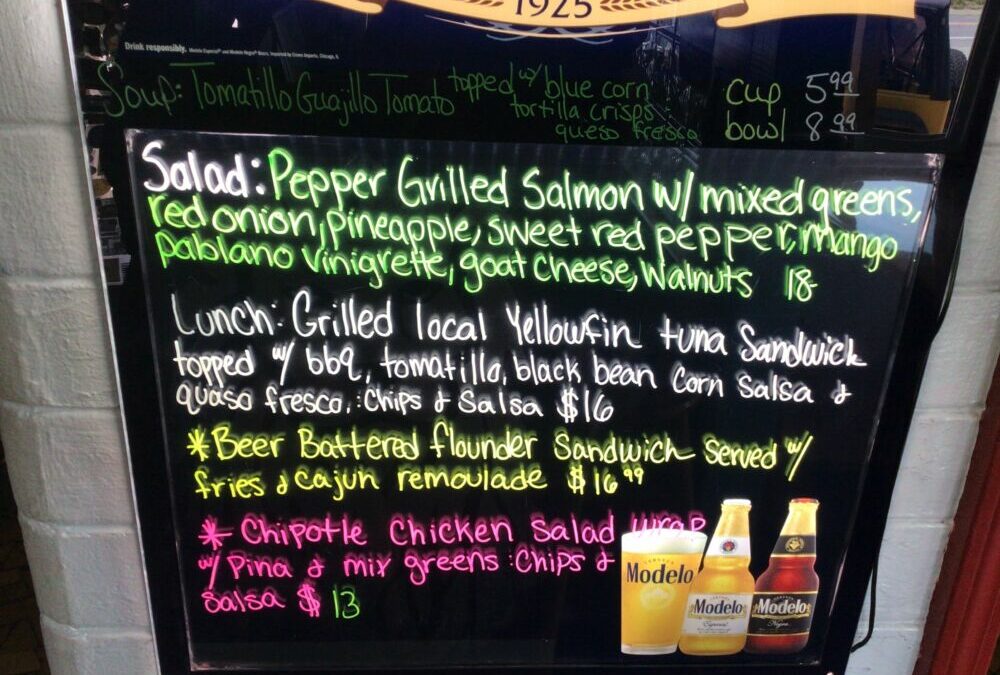 1925
Drink responsibly.
Soup: Tomatillo Guajillo Tomato topped w/ blue corn
tortilla crisps :
queso fresco
cup 5.99
bowl 8.99
Salad: Pepper Grilled Salmon w/ mixed greens,
red onion, pineapple, sweet red pepper, mango
pablano vinigrette, goat cheese, walnuts 18-
Lunch: Grilled local Yellowfin tuna Sandwich
topped w/ bbq, tomatillo, black bean corn salsa &
quaso fresco, :chips & Salsa $16
*Beer Battered flounder Sandwich Served w/
fries & cajun remoulade $16.99
* Chipotle Chicken Salad wrap
w/ Pina & mix greens :Chips &
salsa $13
Modelo
Modelo
Especial
Modelo
Negra